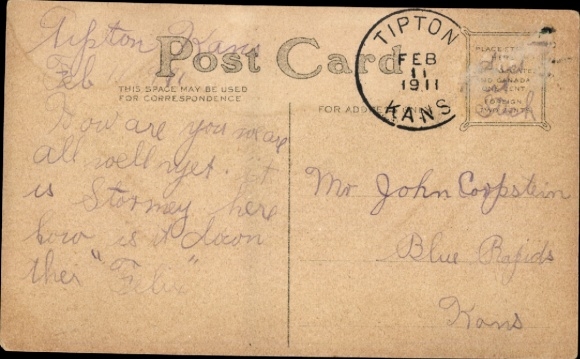 Tipton Kans
Feb
Post Card
THIS SPACE MAY BE USED
FOR CORRESPONDENCE
How are you we are
all well yet. it
is Stormey here
how is it down
ther "Felix"
TIPTON
FEB
11
1911
KANS
PLACE
FOR ADD
Mr John Corpstein
Blue Rapids
Kans